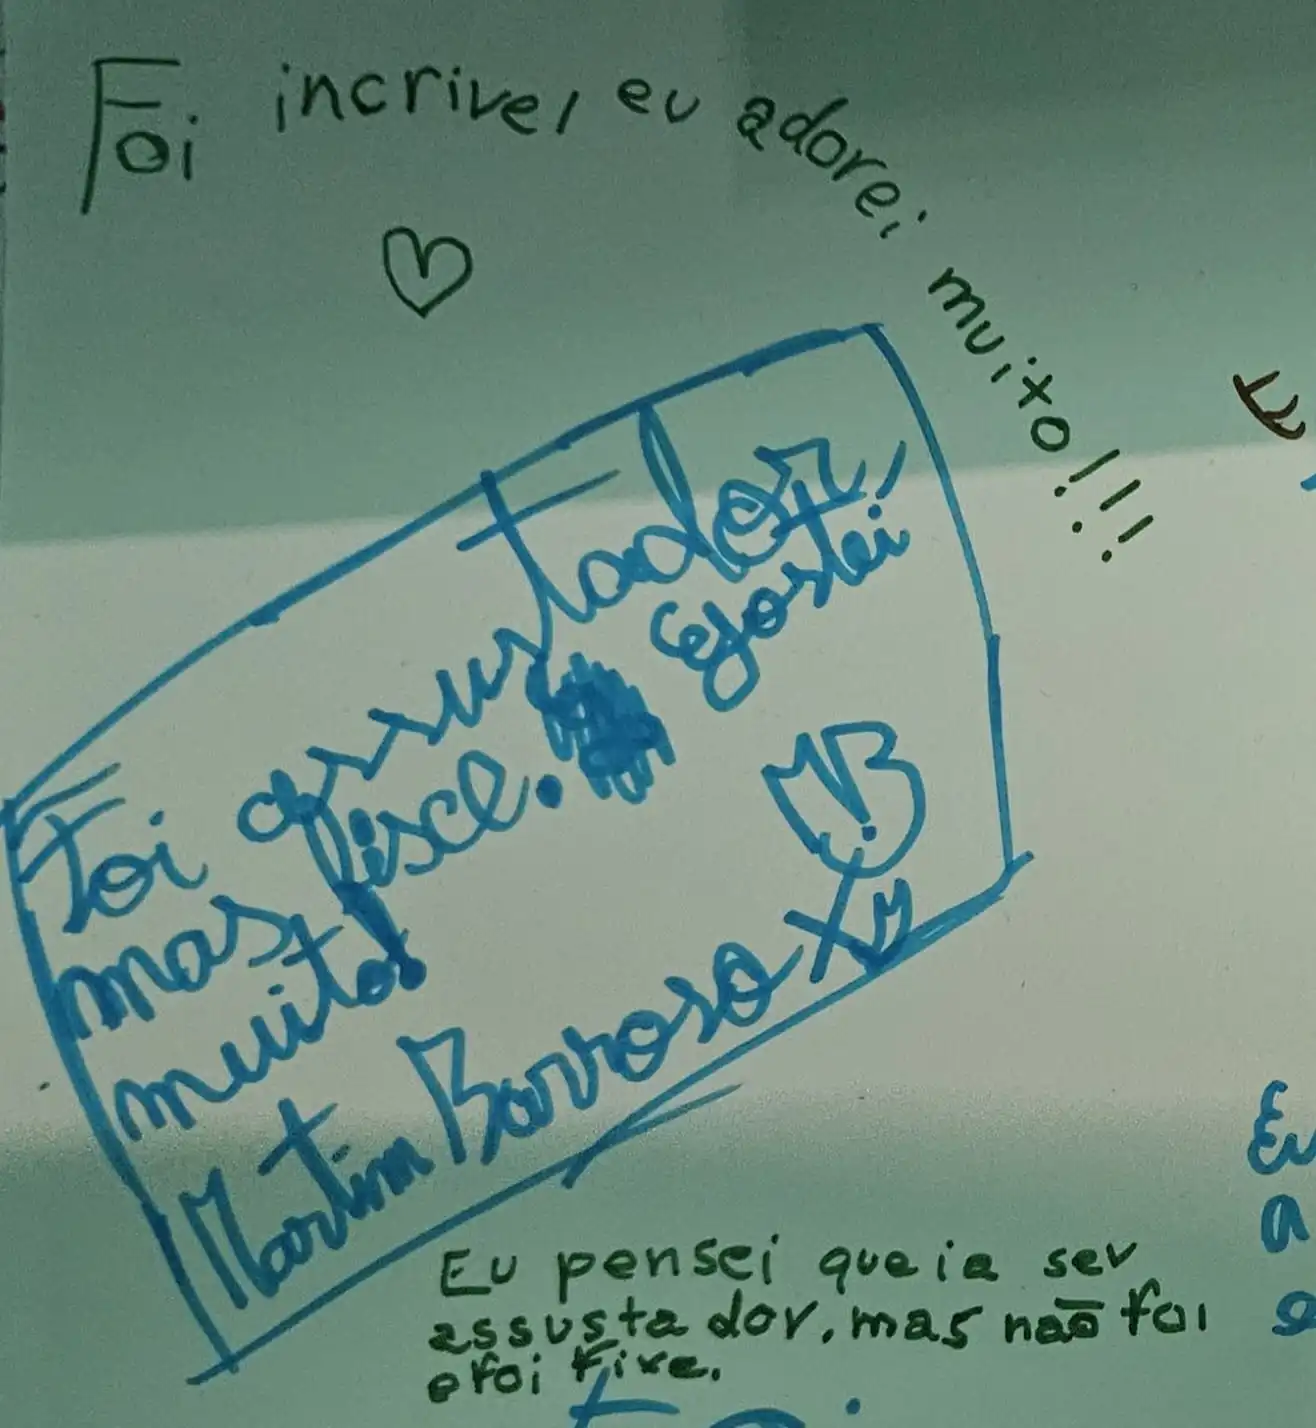 Foi incrivel eu adorei muito!!!
Foi assustador,
mas fisce. Gostei
muito!
MB
Martim Barroso
Eu pensei que ia ser
assustador, mas não foi
e foi fixe.
Eu
a